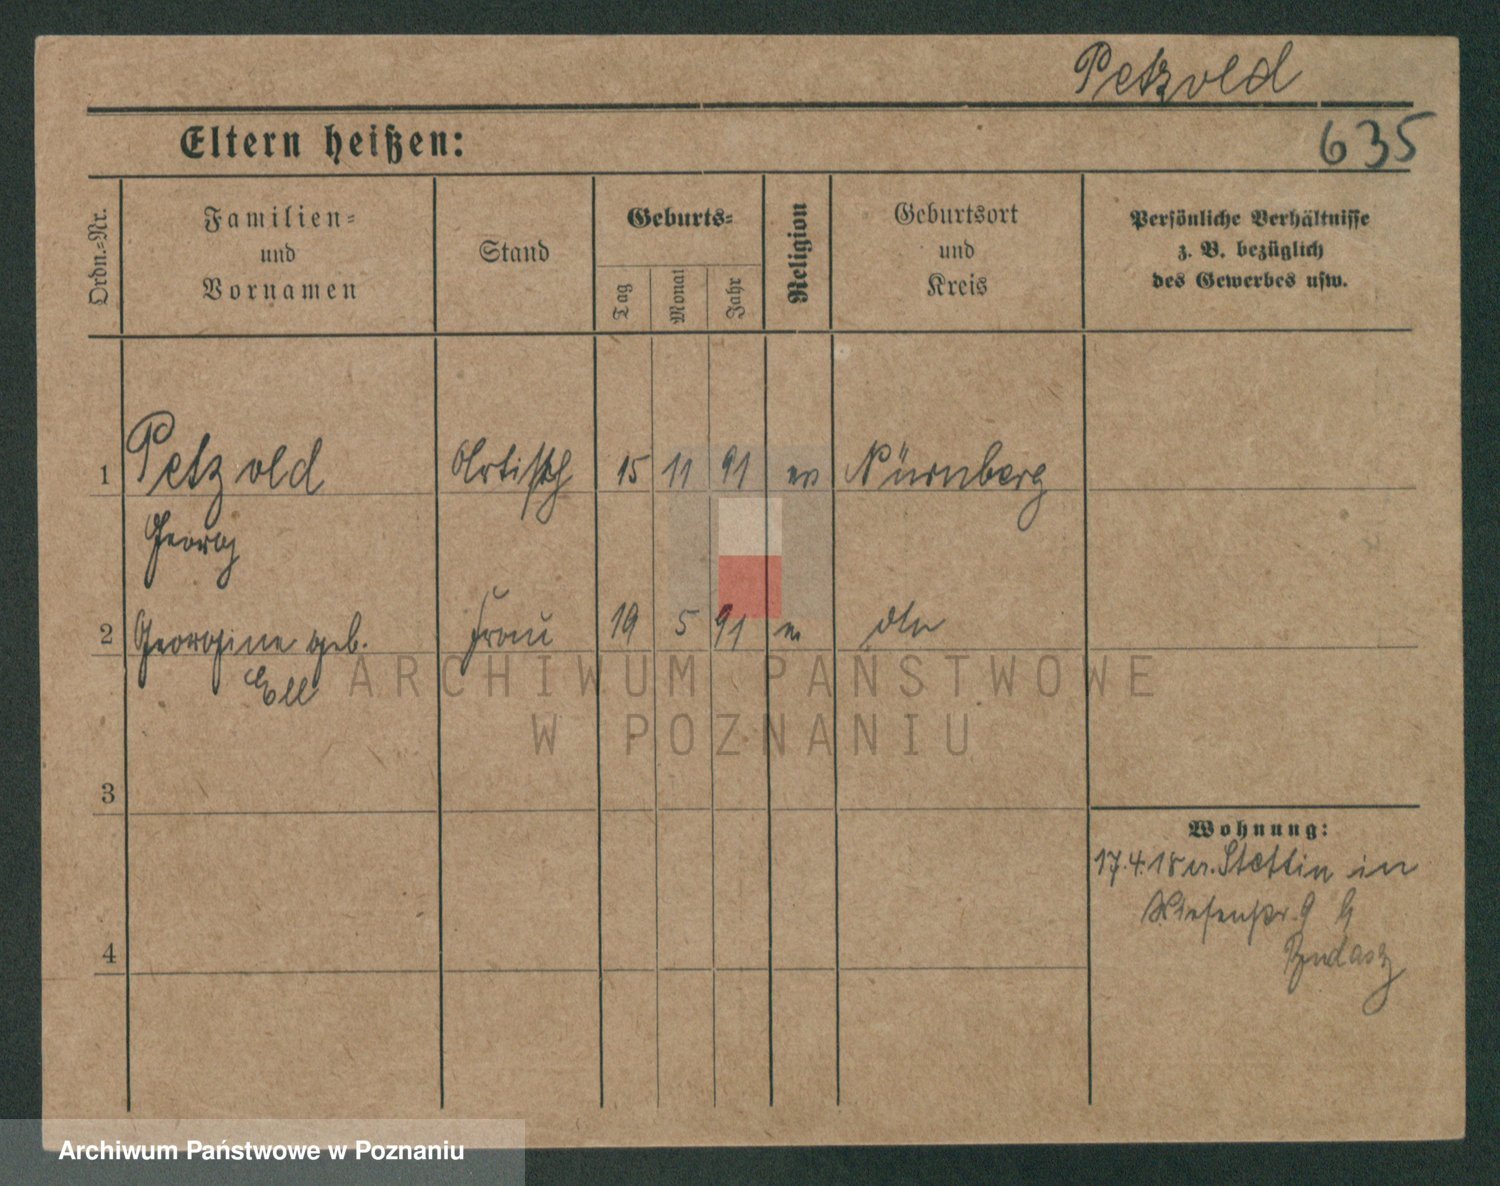 Petzold
Eltern heißen:
635
Ordn.-Nr.
Familien-
und
Vornamen
Stand
Geburts-
Tag
Monat
Jahr
Religion
Geburtsort
und
Kreis
Persönliche Verhältnisse
z. B. bezüglich
des Gewerbes usw.
1 Petzold Artist 15 11 91 ev Nürnberg
Georg
2 Georgine geb. Frau 19 5 91 dto
Ell
ARCHIWUM PAŃSTWOWE
W POZNANIU
3
Wohnung:
17.4.18 Stettin in
Wiesenstr. 9
4
Archiwum Państwowe w Poznaniu